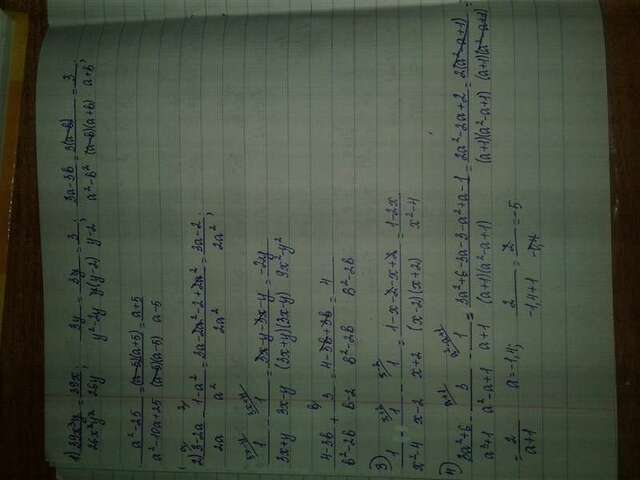 1) 39x³y/26x²y² = 39x/26y; 3y/(y²-2y) = 3y/(y(y-2)) = 3/(y-2); (3a-3b)/(a²-b²) = 3(a-b)/((a-b)(a+b)) = 3/(a+b);
(a²-25)/(a²-10a+25) = (a-5)(a+5)/((a-5)(a-5)) = (a+5)/(a-5)
2) (3-2a)/2a - (1-a²)/a² = (3a-2a²-2+2a²)/2a² = (3a-2)/2a²;
1/(3x+y) - 1/(3x-y) = (3x-y-3x-y)/((3x+y)(3x-y)) = -2y/(9x²-y²)
(4-3b)/(b²-2b) + 3/(b-2) = (4-3b+3b)/(b²-2b) = 4/(b²-2b)
3) 1/(x²-4) - 1/(x-2) - 1/(x+2) = (1-x-2-x+2)/((x-2)(x+2)) = (1-2x)/(x²-4)
4) (3a²+6)/(a³+1) - 3/(a²-a+1) - 1/(a+1) = (3a²+6-3a-3-a²+a-1)/((a+1)(a²-a+1)) = (2a²-2a+2)/((a+1)(a²-a+1)) = 2(a²-a+1)/((a+1)(a²-a+1)) =
= 2/(a+1) a=-1,4; 2/(-1,4+1) = 2/(-0,4) = -5